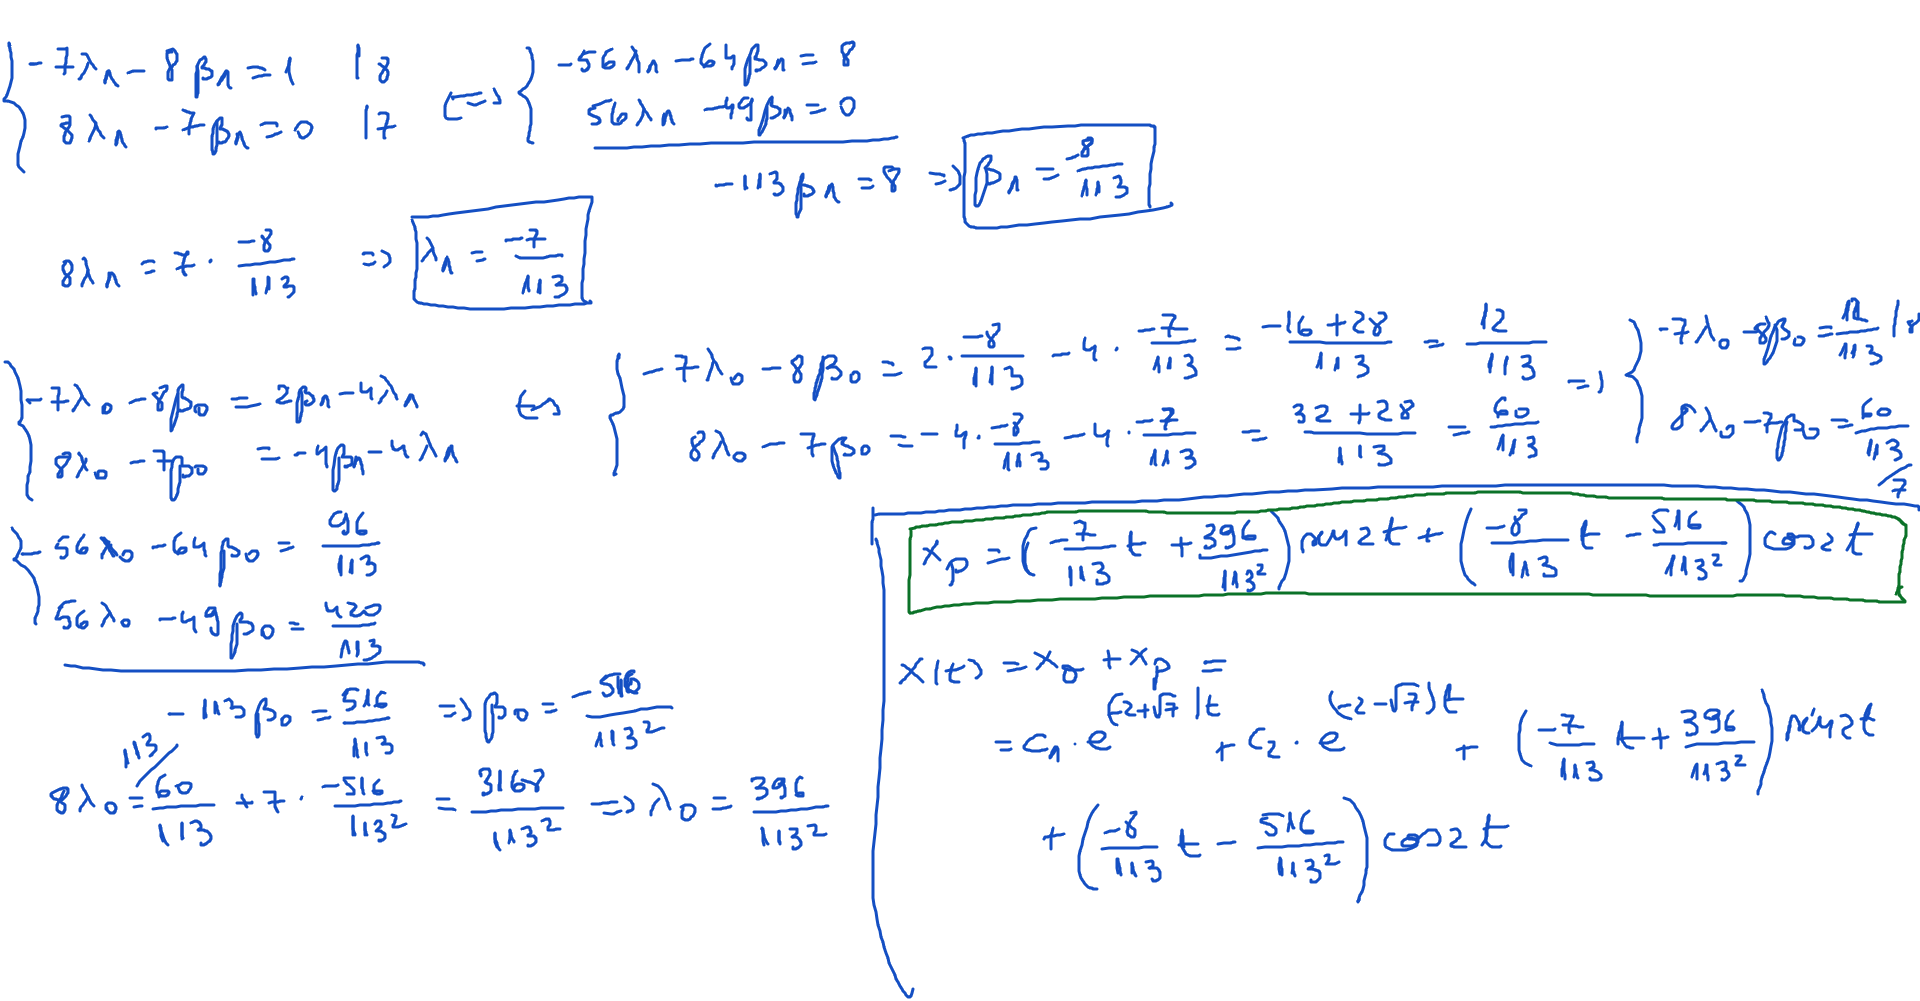 { -7λ₁ - 8β₁ = 1 | 8
8λ₁ - 7β₁ = 0 | 7
⟺ { -56λ₁ - 64β₁ = 8
56λ₁ - 49β₁ = 0
-113β₁ = 8 ⇒ β₁ = -8/113
8λ₁ = 7 · -8/113 ⇒ λ₁ = -7/113
{ -7λ₀ - 8β₀ = 2β₁ - 4λ₁
8λ₀ - 7β₀ = -4β₁ - 4λ₁
⟺ { -7λ₀ - 8β₀ = 2 · -8/113 - 4 · -7/113 = (-16 + 28)/113 = 12/113
8λ₀ - 7β₀ = -4 · -8/113 - 4 · -7/113 = (32 + 28)/113 = 60/113
⇒ { -7λ₀ - 8β₀ = 12/113 | 8
8λ₀ - 7β₀ = 60/113 / 7
{ -56λ₀ - 64β₀ = 96/113
56λ₀ - 49β₀ = 420/113
-113β₀ = 516/113 ⇒ β₀ = -516/113²
113/
8λ₀ = 60/113 + 7 · -516/113² = 3168/113² ⇒ λ₀ = 396/113²
xₚ = (-7/113 t + 396/113²) sin2t + (-8/113 t - 516/113²) cos2t
x(t) = x₀ + xₚ =
= c₁ · e^(-2+√7)t + c₂ · e^(-2-√7)t + (-7/113 t + 396/113²) sin2t
+ (-8/113 t - 516/113²) cos2t